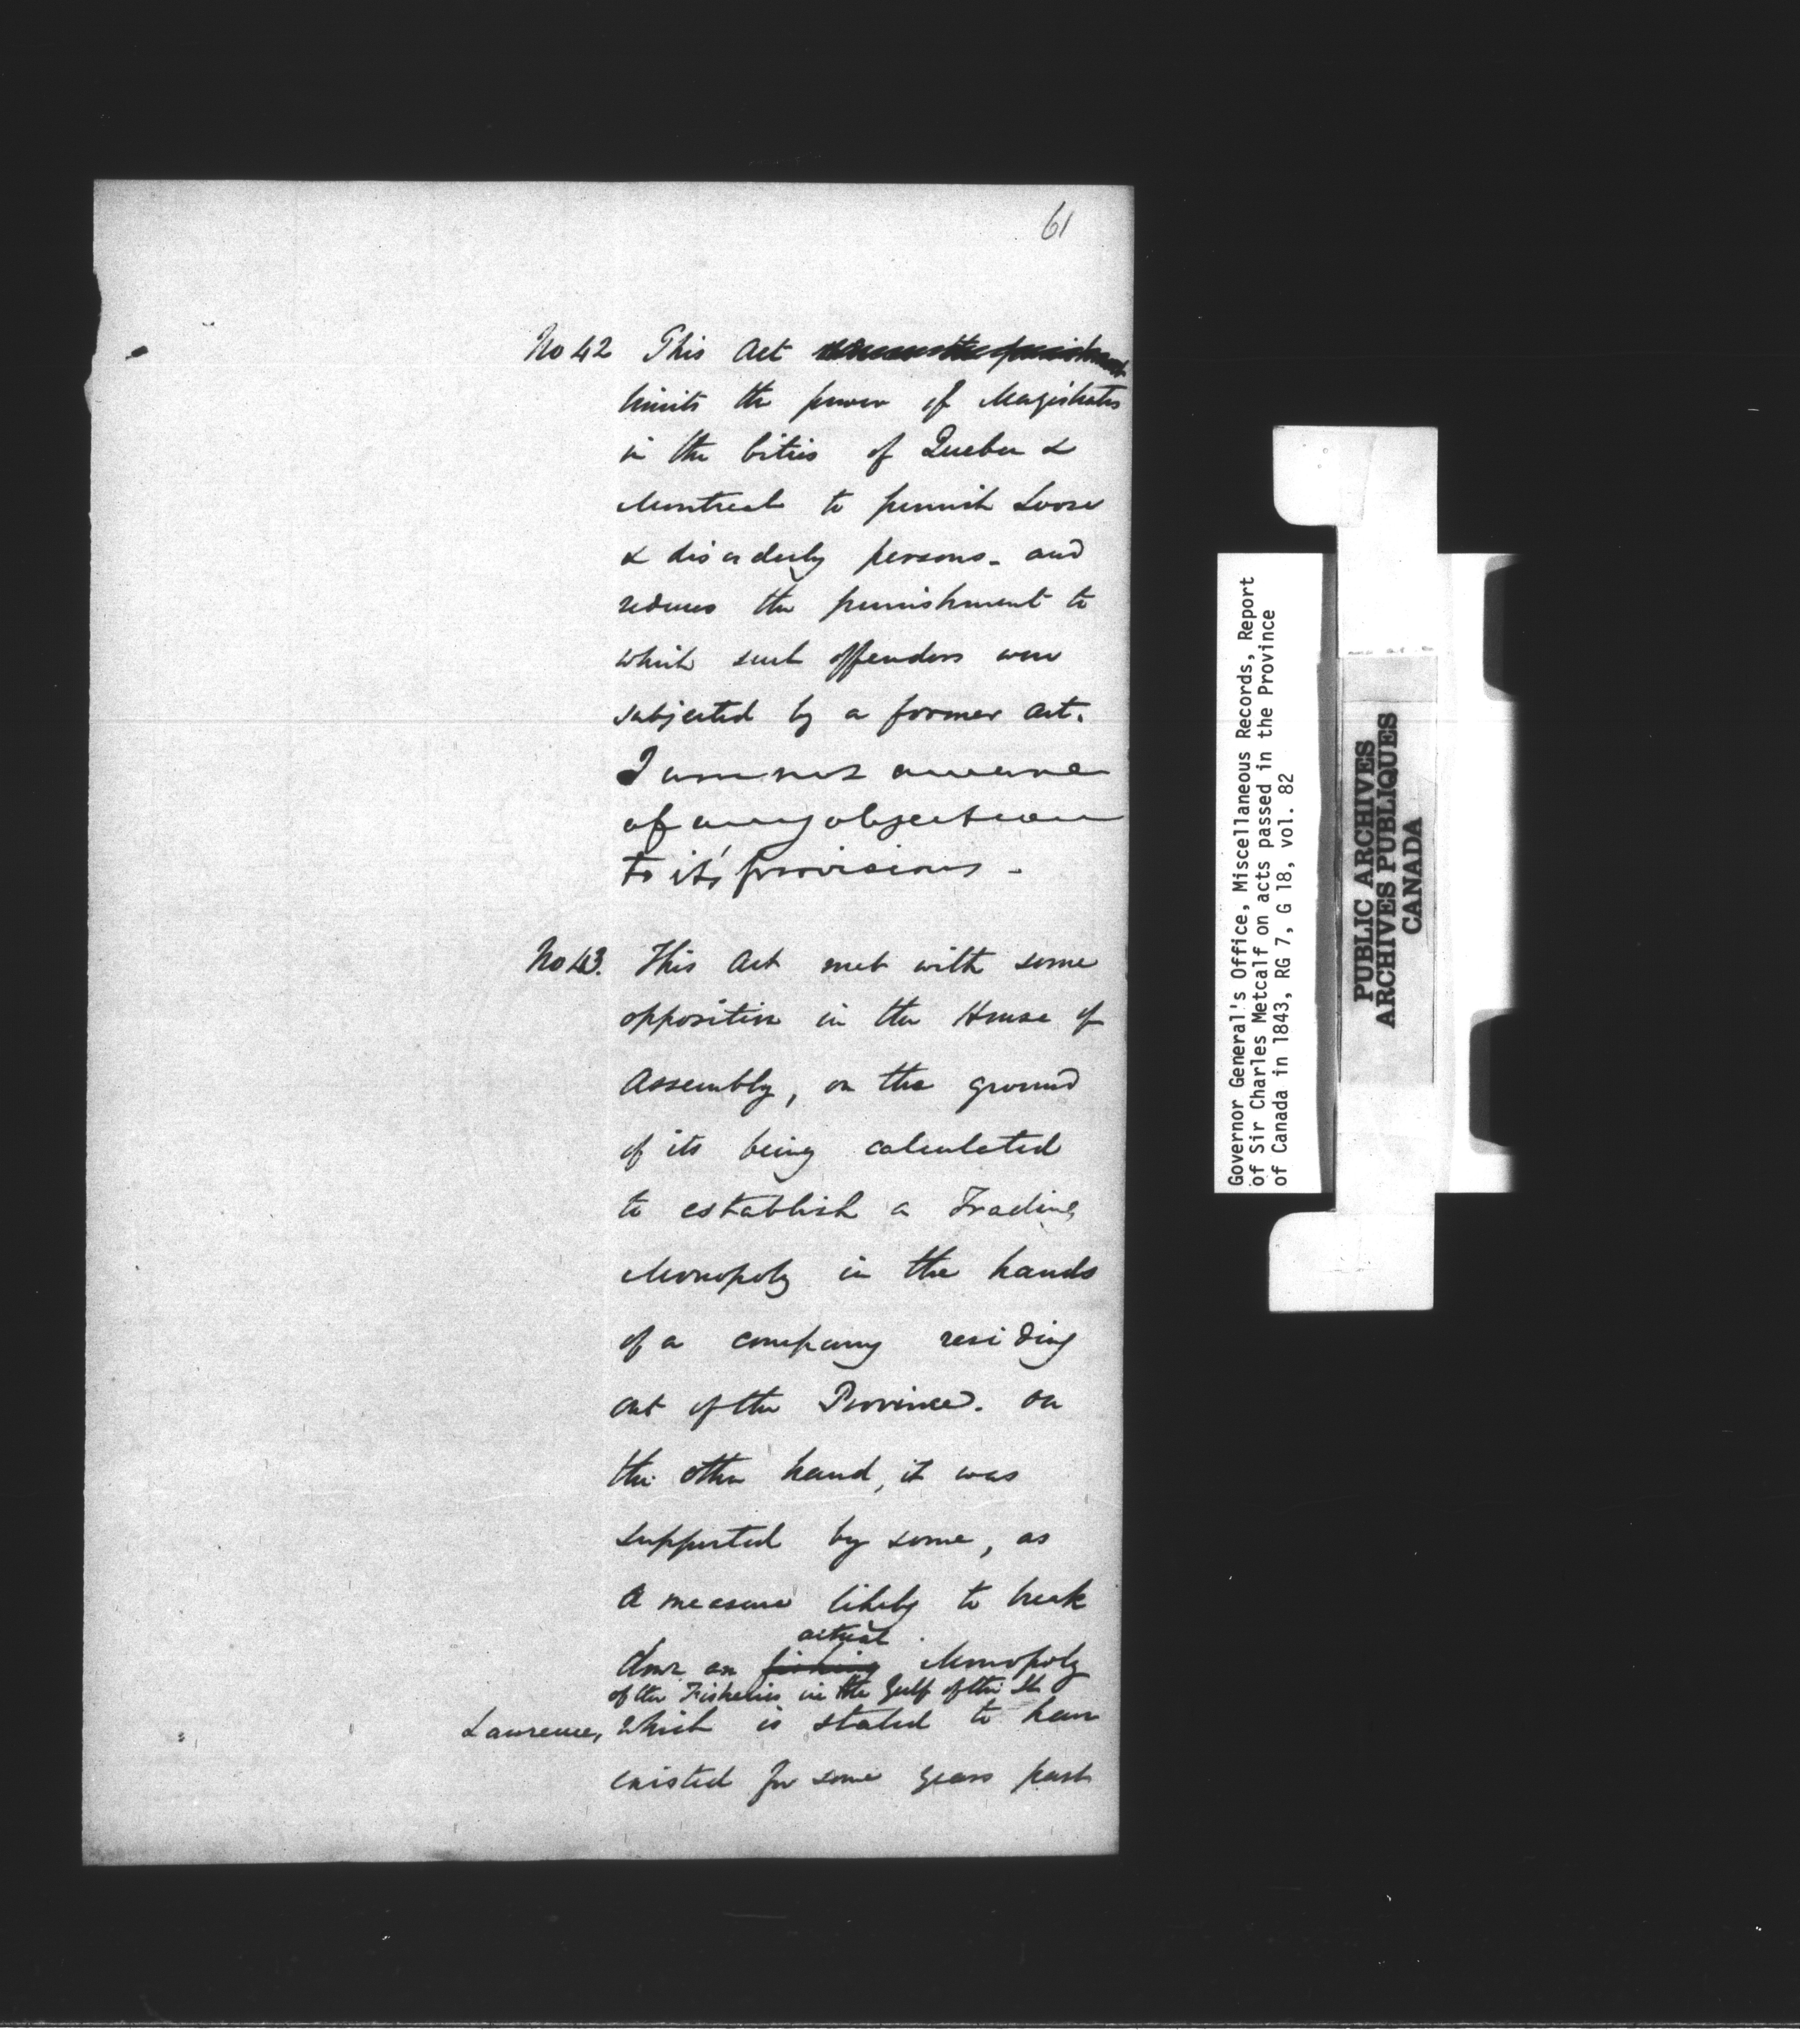 61
No 42 This Act
limits the power of Magistrates
in the Cities of Quebec &
Montreal to punish Loose
& disorderly persons - and
reduces the punishment to
which such offenders were
subjected by a former Act.
I am not aware
of any objection
to it's provisions -
No 43. This Act met with some
opposition in the House of
Assembly, on the ground
of its being calculated
to establish a Trading
Monopoly in the hands
of a company residing
out of the Province. On
the other hand, it was
supported by some, as
a measure likely to break
actual
down an fishing Monopoly
of the Fisheries in the Gulf of the St
Lawrence, which is stated to have
existed for some years past
Governor General's Office, Miscellaneous Records, Report
of Sir Charles Metcalf on acts passed in the Province
of Canada in 1843, RG 7, G 18, vol. 82
PUBLIC ARCHIVES
ARCHIVES PUBLIQUES
CANADA